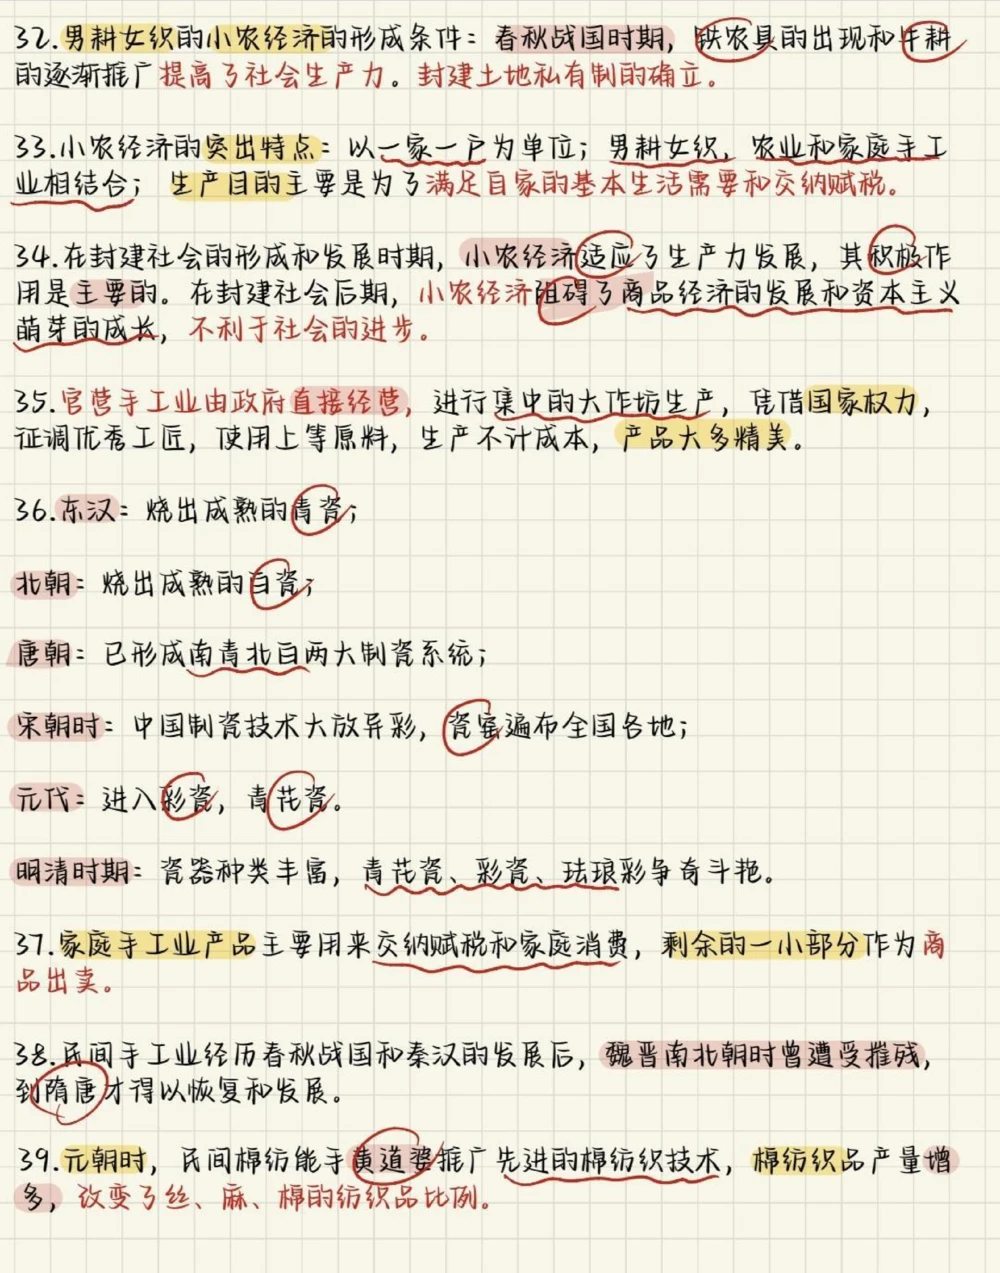 32.男耕女织的小农经济的形成条件：春秋战国时期，铁农具的出现和牛耕
的逐渐推广提高了社会生产力。封建土地私有制的确立。
33.小农经济的突出特点：以一家一户为单位；男耕女织，农业和家庭手工
业相结合；生产目的主要是为了满足自家的基本生活需要和交纳赋税。
34.在封建社会的形成和发展时期，小农经济适应了生产力发展，其积极作
用是主要的。在封建社会后期，小农经济阻碍了商品经济的发展和资本主义
萌芽的成长，不利于社会的进步。
35.官营手工业由政府直接经营，进行集中的大作坊生产，凭借国家权力，
征调优秀工匠，使用上等原料，生产不计成本，产品大多精美。
36.东汉：烧出成熟的青瓷；
北朝：烧出成熟的白瓷；
唐朝：已形成南青北白两大制瓷系统；
宋朝时：中国制瓷技术大放异彩，瓷窑遍布全国各地；
元代：进入彩瓷，青花瓷。
明清时期：瓷器种类丰富，青花瓷、彩瓷、珐琅彩争奇斗艳。
37.家庭手工业产品主要用来交纳赋税和家庭消费，剩余的一小部分作为商
品出卖。
38.民间手工业经历春秋战国和秦汉的发展后，魏晋南北朝时曾遭受摧残，
到隋唐才得以恢复和发展。
39.元朝时，民间棉纺能手黄道婆推广先进的棉纺织技术，棉纺织品产量增
多，改变了丝、麻、棉的纺织品比例。